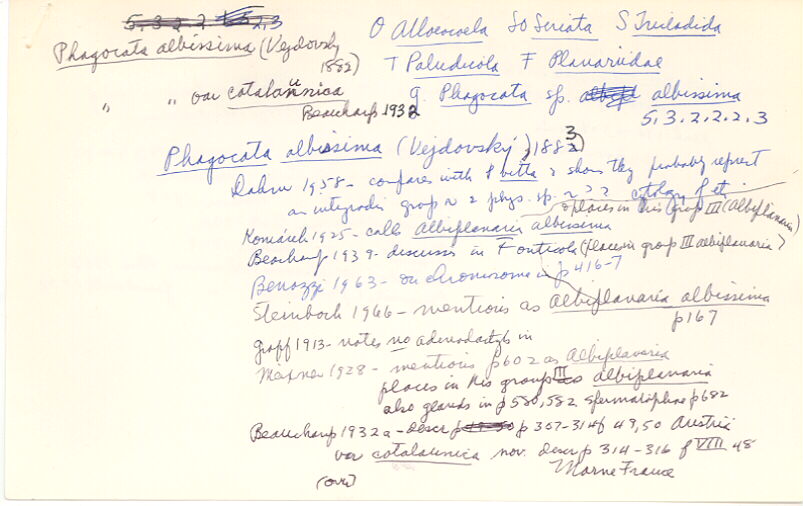 5.3.2.2 1.5.2.3
O Alloeocoela SO Seriata S Tricladida
Phagocata albissima (Vejdovsky 1882)
T Paludicola F Planariidae
" " var catalaunica
Beauchamp 1932
g. Phagocata sp. albissima
5.3.2.2.2.3
Phagocata albissima (Vejdovský, 1883)
Dahm 1958 - compares with P vitta & shows they probably represt
an intergradi group n 2 phys. sp. n
& places in his Group III (Albiplanaria)
Komárek 1925 - calls Albiplanaria albissima
Beauchamp 1939 - discusses in Fonticola (places in group III albiplanaria)
Benazzi 1963 - on chromosome in p 416-7
Steinbock 1966 - mentions as Albiplanaria albissima
p 167
Graff 1913 - notes no adenodactyls in
Meixner 1928 - mentions p 602 as Albiplanaria
places in his group III as albiplanaria
also glands in p 580, 582 spermatophore p 682
Beauchamp 1932a - descr p 307-314 f 49, 50 Austria
var catalaunica nov. descr p 314-316 f VIII 48
Marne France
(over)